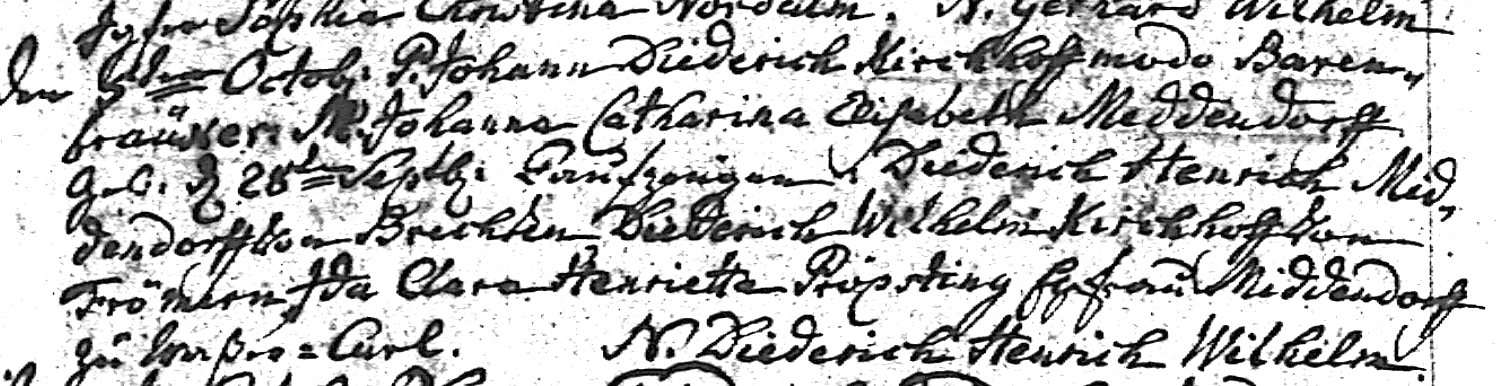 Sophia Christina Nordalm. N. Gerhard Wilhelm
den 5ten Octob: P. Johann Diederich Kirchhoff modo Baren-
bräuker. M. Johanna Catharina Elisabeth Meddendorff
geb: d 28ten Septb: Taufzeugen. Diederich Henrich Mid-
dendorff von Brechten, Diederich Wilhelm Kirchhoff von
Frömern, Ida Clara Henrietta Pröpsting Ehefrau Middendorff
zu Curl. N. Diederich Henrich Wilhelm